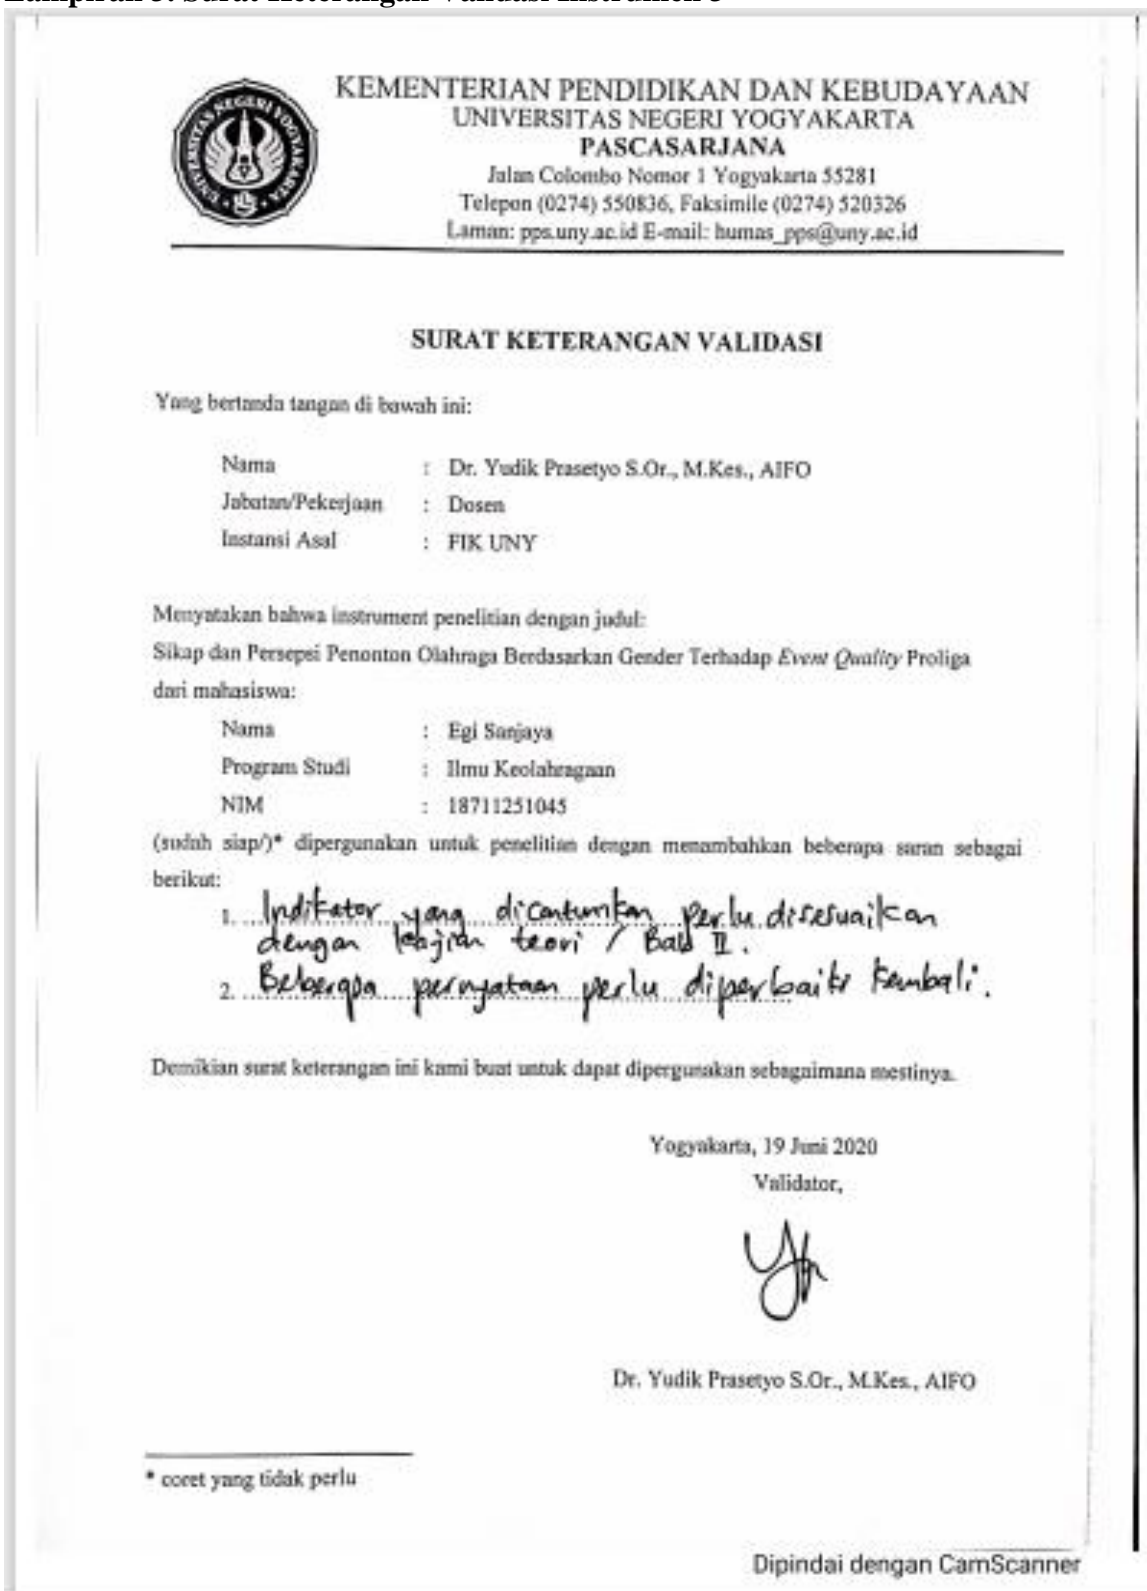 KEMENTERIAN PENDIDIKAN DAN KEBUDAYAAN
UNIVERSITAS NEGERI YOGYAKARTA
PASCASARJANA
Jalan Colombo Nomor 1 Yogyakarta 55281
Telepon (0274) 550836, Faksimile (0274) 520326
Laman: pps.uny.ac.id E-mail: humas_pps@uny.ac.id
UNIVERSITAS NEGERI YOGYAKARTA
SURAT KETERANGAN VALIDASI
Yang bertanda tangan di bawah ini:
Nama : Dr. Yudik Prasetyo S.Or., M.Kes., AIFO
Jabatan/Pekerjaan : Dosen
Instansi Asal : FIK UNY
Menyatakan bahwa instrument penelitian dengan judul:
Sikap dan Persepsi Penonton Olahraga Berdasarkan Gender Terhadap Event Quality Proliga
dari mahasiswa:
Nama : Egi Sanjaya
Program Studi : Ilmu Keolahragaan
NIM : 18711251045
(sudah siap/)* dipergunakan untuk penelitian dengan menambahkan beberapa saran sebagai
berikut:
1. Indikator yang dicantumkan perlu disesuaikan
dengan kajian teori / Bab II.
2. Beberapa pernyataan perlu diperbaiki kembali.
Demikian surat keterangan ini kami buat untuk dapat dipergunakan sebagaimana mestinya.
Yogyakarta, 19 Juni 2020
Validator,
Dr. Yudik Prasetyo S.Or., M.Kes., AIFO
* coret yang tidak perlu
Dipindai dengan CamScanner